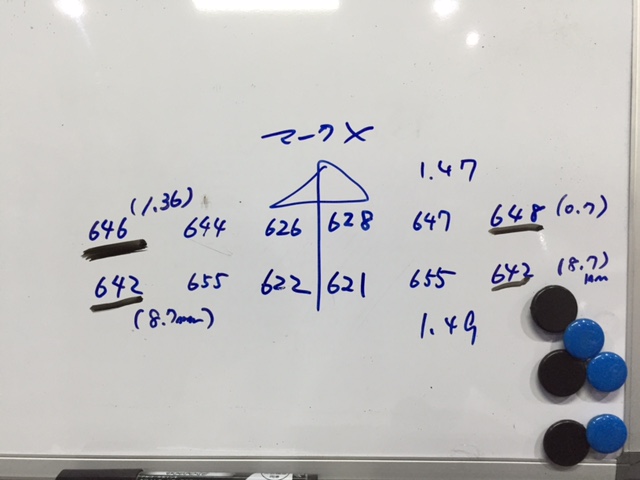 マークX
1.47
(1.36)
646 644 626 628 647 648 (0.7)
642 655 622 621 655 642 (8.7)
(8.7mm)
1.49